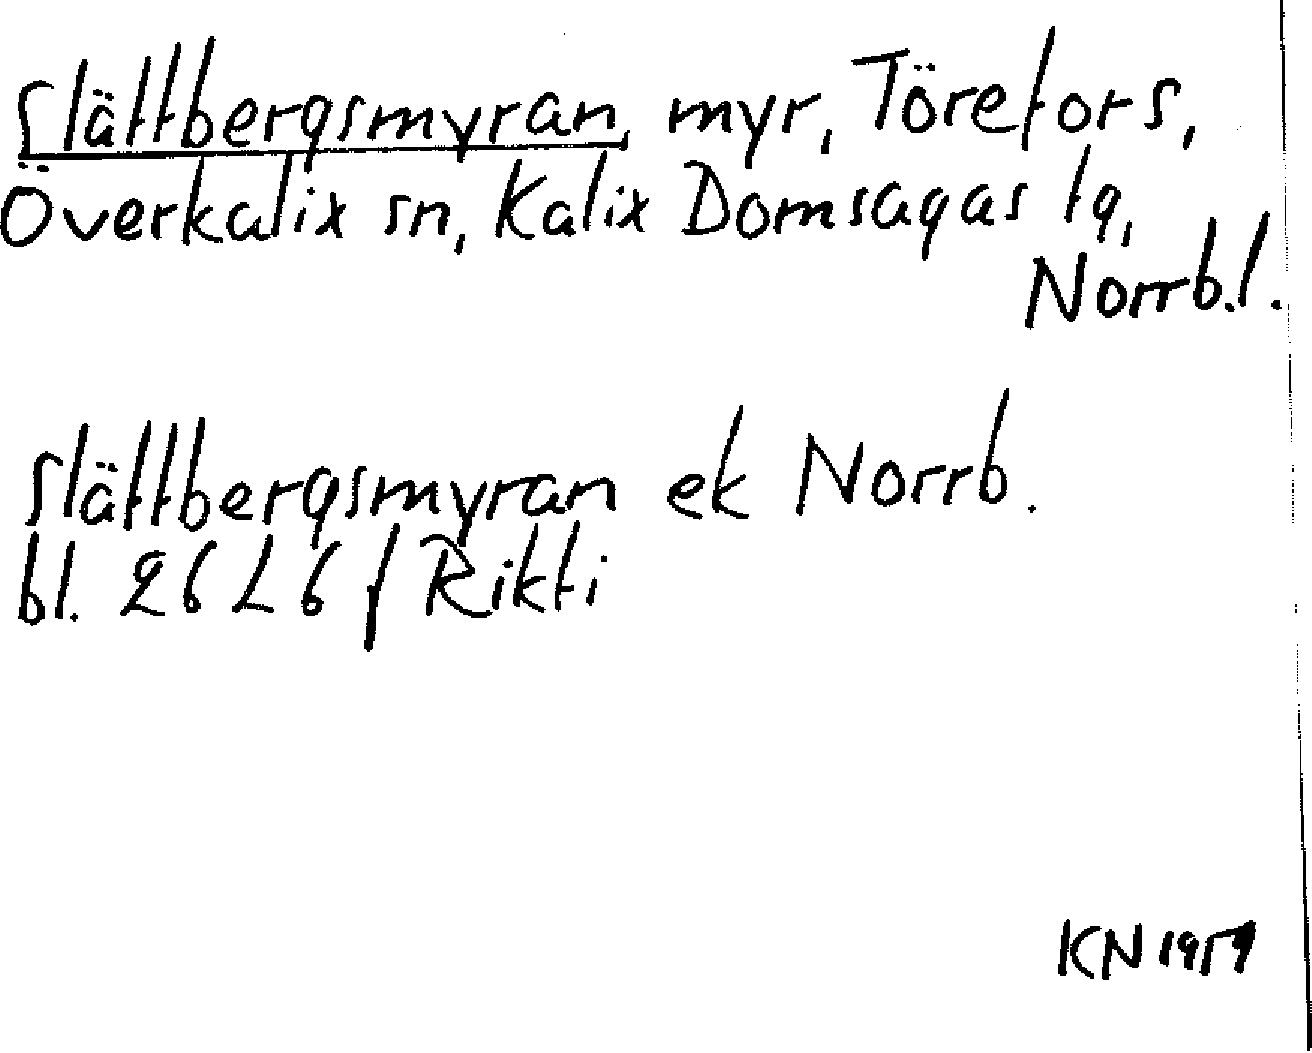 Slättbergsmyran, myr, Törefors,
Överkalix sn, Kalix Domsagas tg,
Norrb.l.
Slättbergsmyran ek Norrb.
bl. 26 L 6 f Rikti
KN